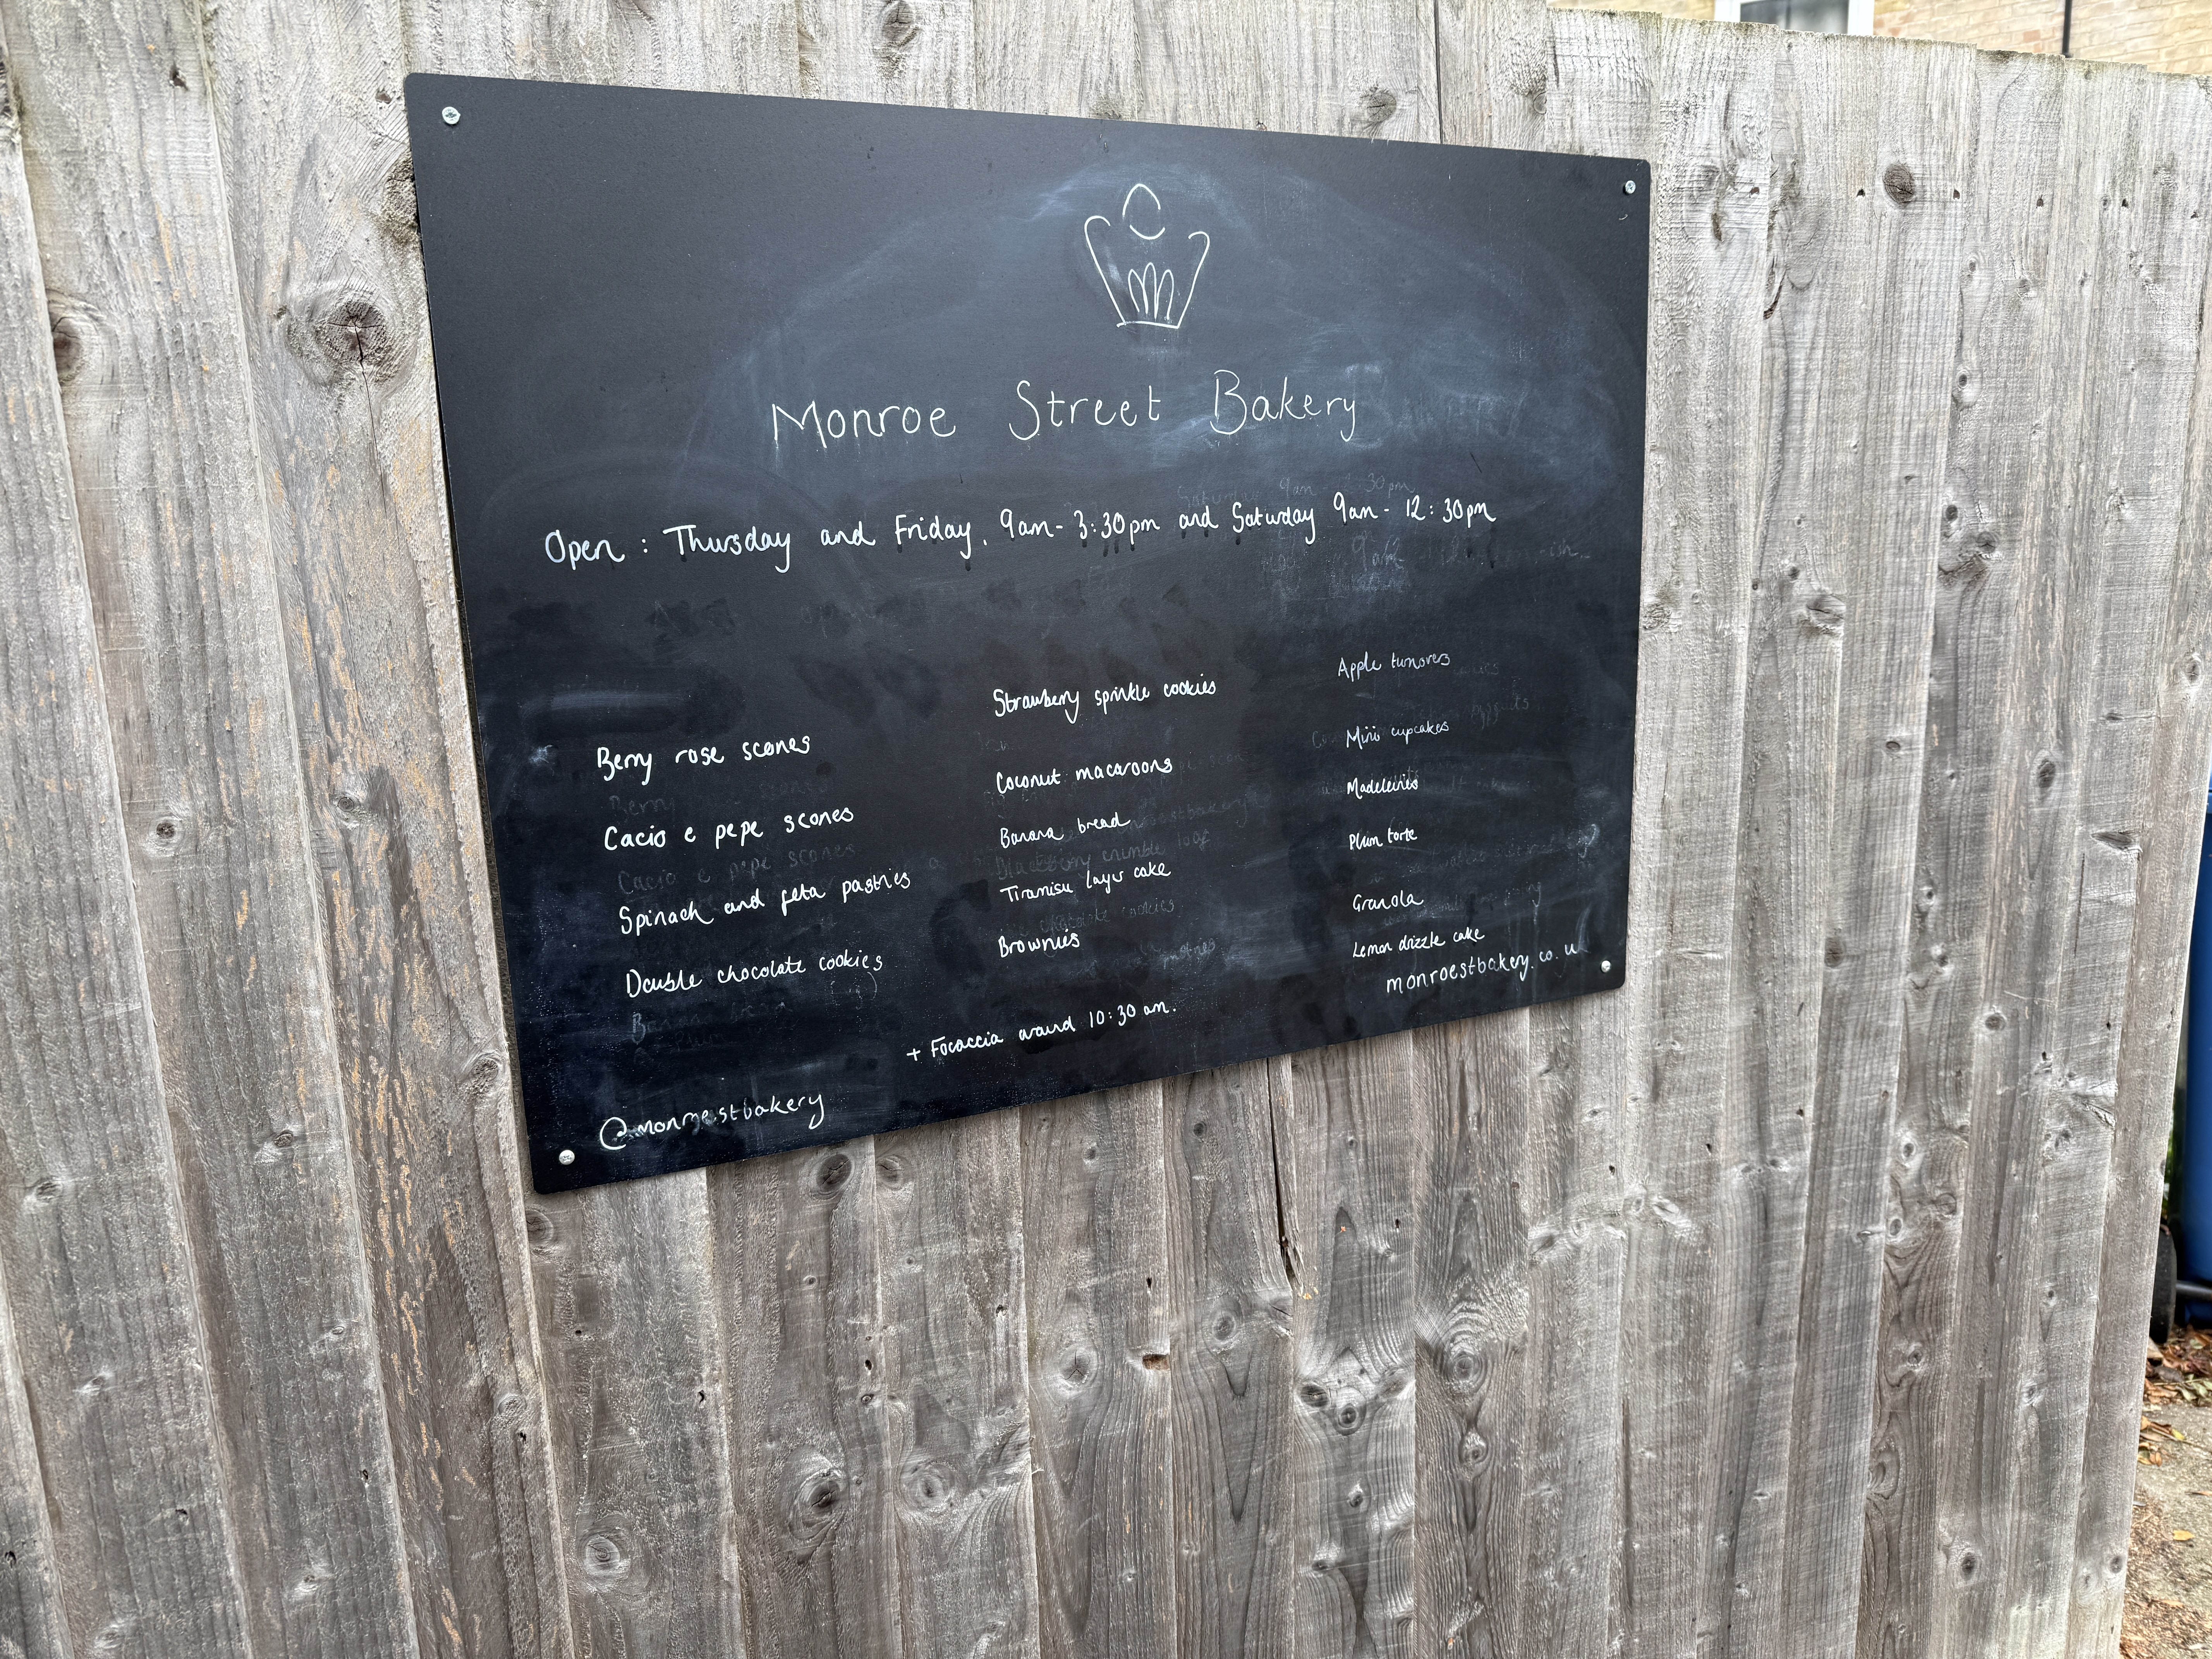 Monroe Street Bakery
Open : Thursday and Friday, 9am - 3:30pm and Saturday 9am - 12:30pm
Berry rose scones
Cacio e pepe scones
Spinach and feta pastries
Double chocolate cookies
Strawberry sprinkle cookies
Coconut macaroons
Banana bread
Tiramisu layer cake
Brownies
Apple turnovers
Mini cupcakes
Madeleines
Plum torte
Granola
Lemon drizzle cake
+ Focaccia around 10:30 am.
@monroestbakery
monroestbakery.co.u